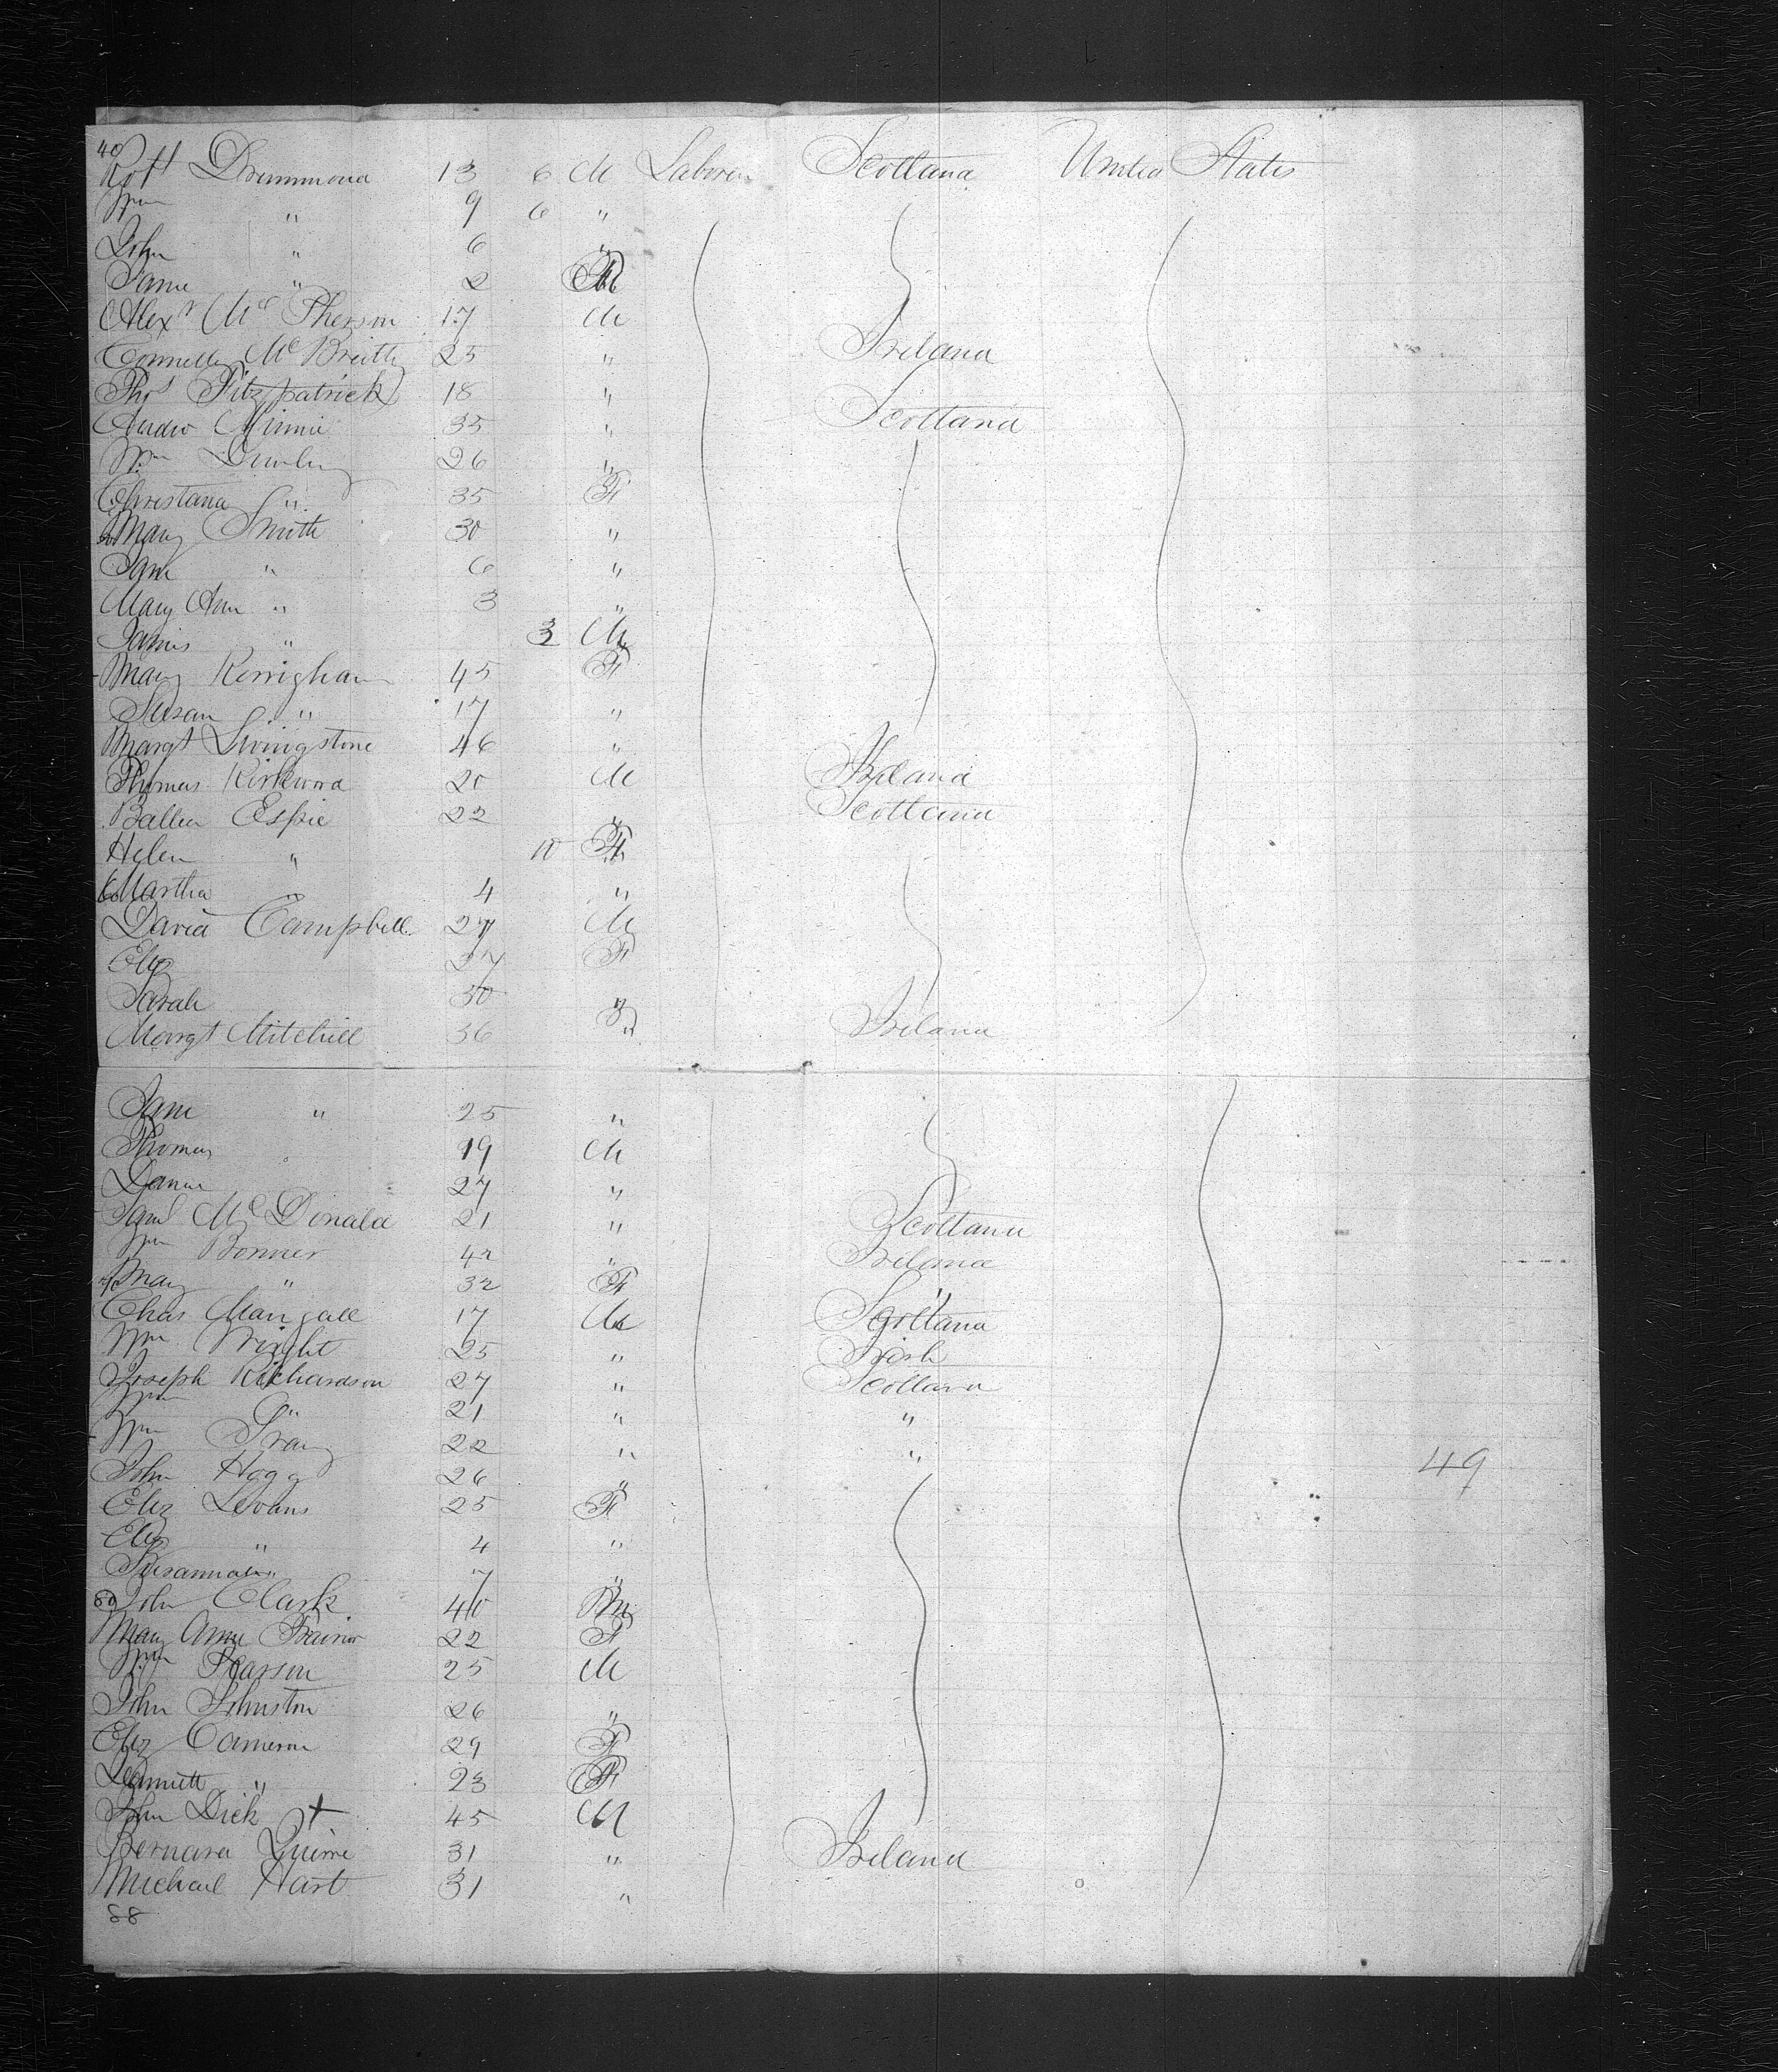 40
Robt Drummond 13 6 M Laborer Scotland United States
Wm " 9 6 "
John " 6 "
Jane " 2
Alexr McPherson 17 M
Connelly McBreith 25 " Ireland
Thos Fitzpatrick 18 " Scotland
Andw Minnie 35 "
Wm 26 "
Christana " 35 F
50 Mary Smith 30 "
Jane " 6 "
Mary Ann " 3 "
James " 3 M
Mary Kerrigham 45 F
Susan " 17 "
Margt Livingstone 46 "
Thomas Kirkwood 20 M Ireland
Espie 22 " Scotland
Helen " 10 F
60 Martha 4 "
David Campbell 27 M
Eliz 27 F
Sarah 30 "
Margt Mitchell 36 " Ireland
Jane " 25 "
Thomas 19 M
Daniel 27 "
Saml McDonald 21 " Scotland
Wm Bonner 42 " Ireland
70 Mary " 32 F "
Chas 17 M Scotland
Wm Wright 25 " Irish
Joseph Richardson 27 " Scotland
Wm " 21 " "
Wm 22 " "
John Hogg 26 " 49
Eliz 25 F
Eliz " 4 "
Susannah " 7 "
80 John Clark 40 M
Mary Anne Trainor 22 F
Wm Pearson 25 M
John Johnston 26 "
Eliz Cameron 29 F
" 23 F
John Dick + 45 M
Bernard Quinn 31 " Ireland
Michael Hart 31 "
88